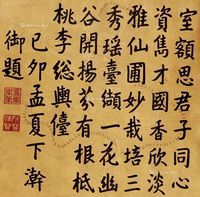 室額思君子同心
資雋才國香欣淡
雅仙圃妙栽培三
秀瑤臺纈一花幽
谷開揚芬有根柢
桃李総輿儓
己卯孟夏下澣
御題